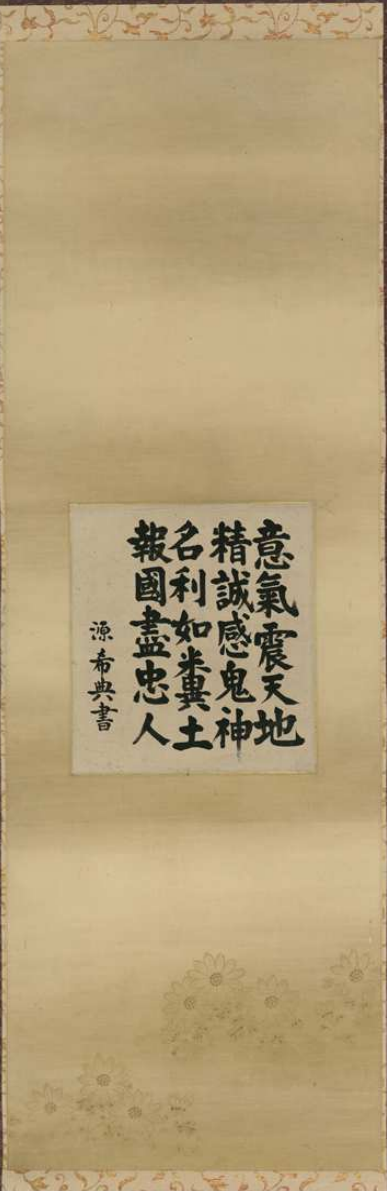 意氣震天地
精誠感鬼神
名利如糞土
報國盡忠人
源希典書